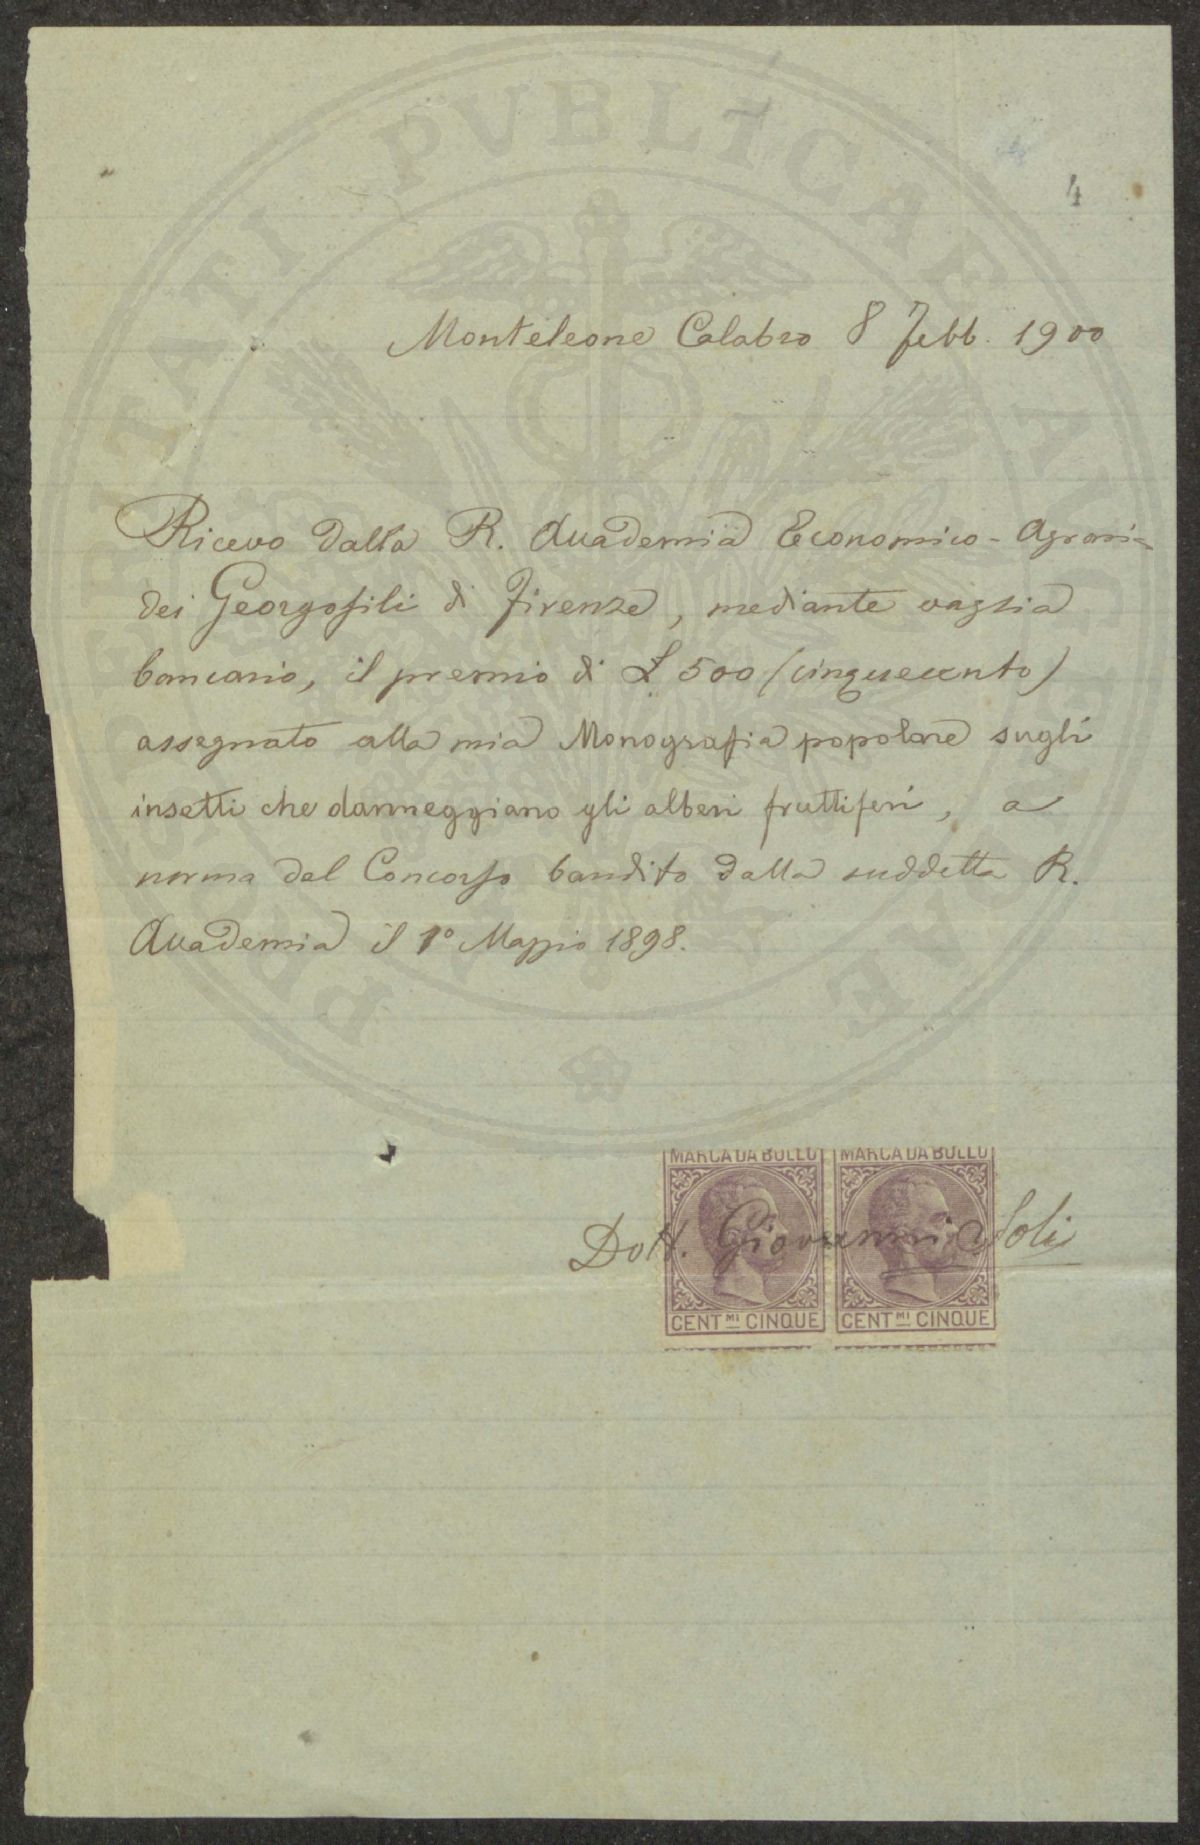 PROSPERITATI PVBLICAE AVGENDAE
4
Monteleone Calabro 8 Febb. 1900
Ricevo dalla R. Accademia Economico-Agraria
dei Georgofili di Firenze, mediante vaglia
bancario, il premio di £ 500 (cinquecento)
assegnato alla mia Monografia popolare sugli
insetti che danneggiano gli alberi fruttiferi, a
norma del Concorso bandito dalla suddetta R.
Accademia il 1º Maggio 1898.
MARCA DA BOLLO MARCA DA BOLLO
Dott. Giovanni Soli
CENT.MI CINQUE CENT.MI CINQUE